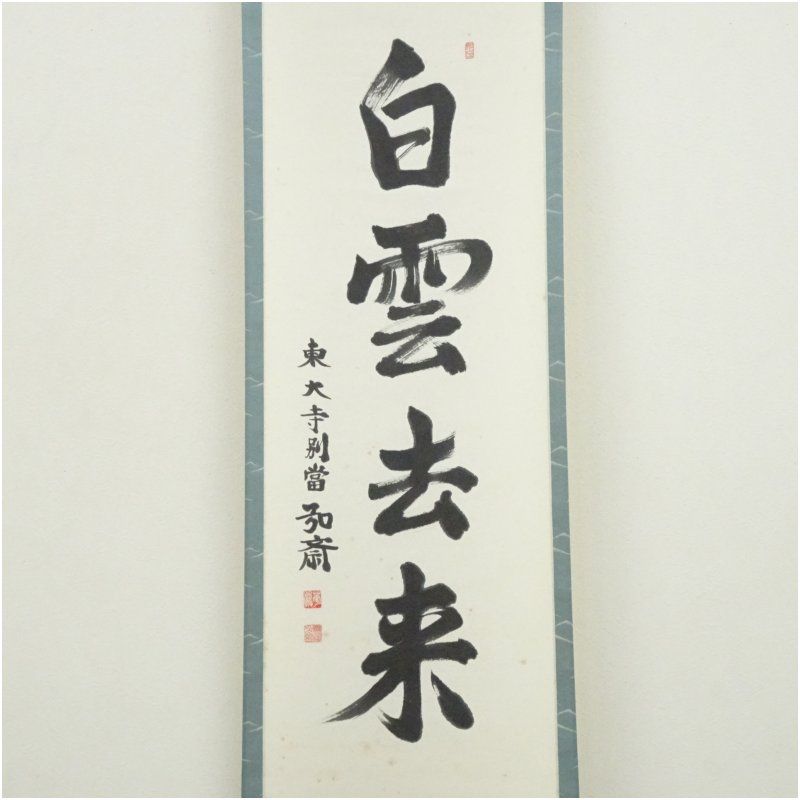 白雲去来
東大寺別當弘斎